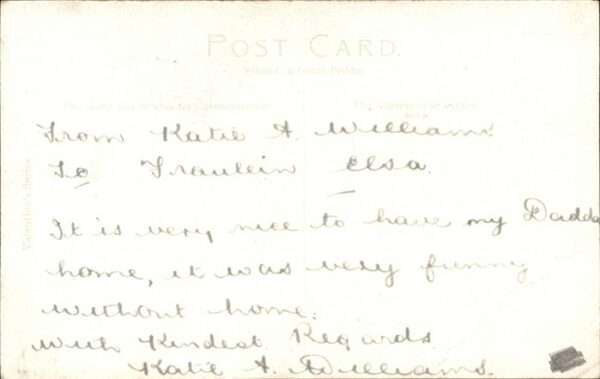 POST CARD.
From Katie A. Williams.
To Fraulein Elsa.
It is very nice to have my Dadda
home, it was very funny
without home.
With Kindest Regards
Katie A. Williams.